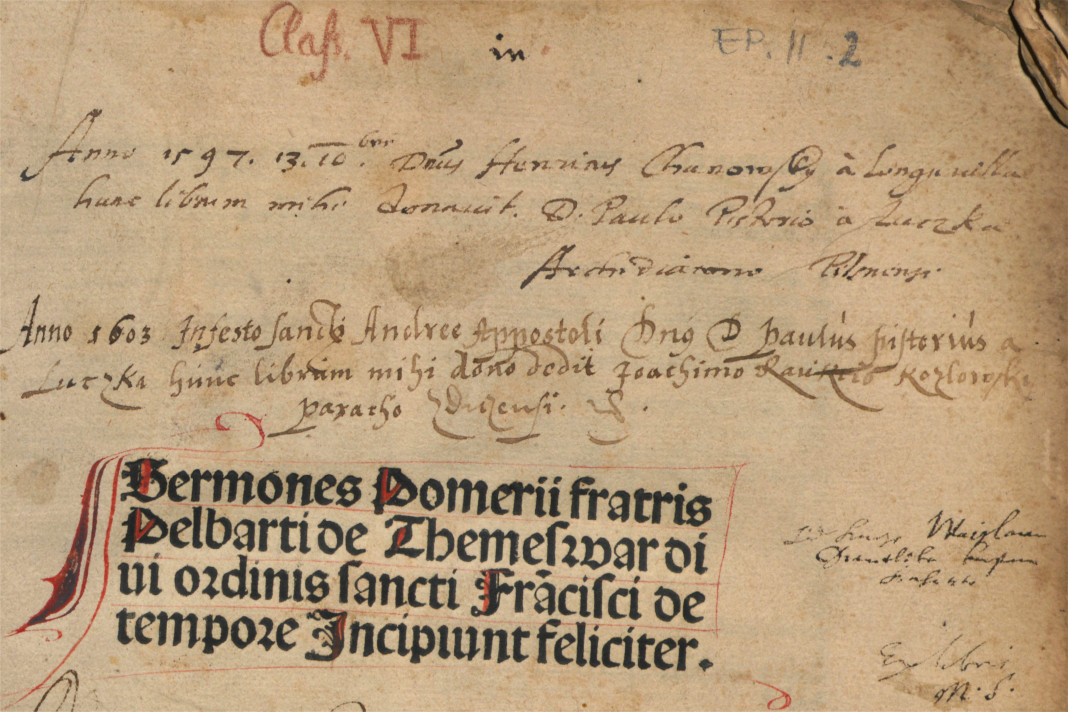 Class. VI in EP. II. 2
Anno 1597. 13. 10.bris Dnus Henricus Chanowsky à Longavilla
hunc librum mihi donavit. D. Paulo Pistorio à Luczka
Archidiacono Pilsnensi.
Anno 1603 In festo Sancti Andree Appostoli Dnus D Paulus Pistorius a
Luczka hunc librum mihi dono dedit Joachimo Kozlowski
paracho Zdicensi.
Sermones Pomerii fratris
Pelbarti de Themeswar di
ui ordinis sancti Frācisci de
tempore Incipiunt feliciter.
Ex libris
M. S.